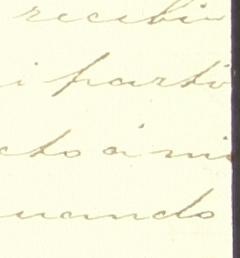 recibir
i parti
cto á mi
uando